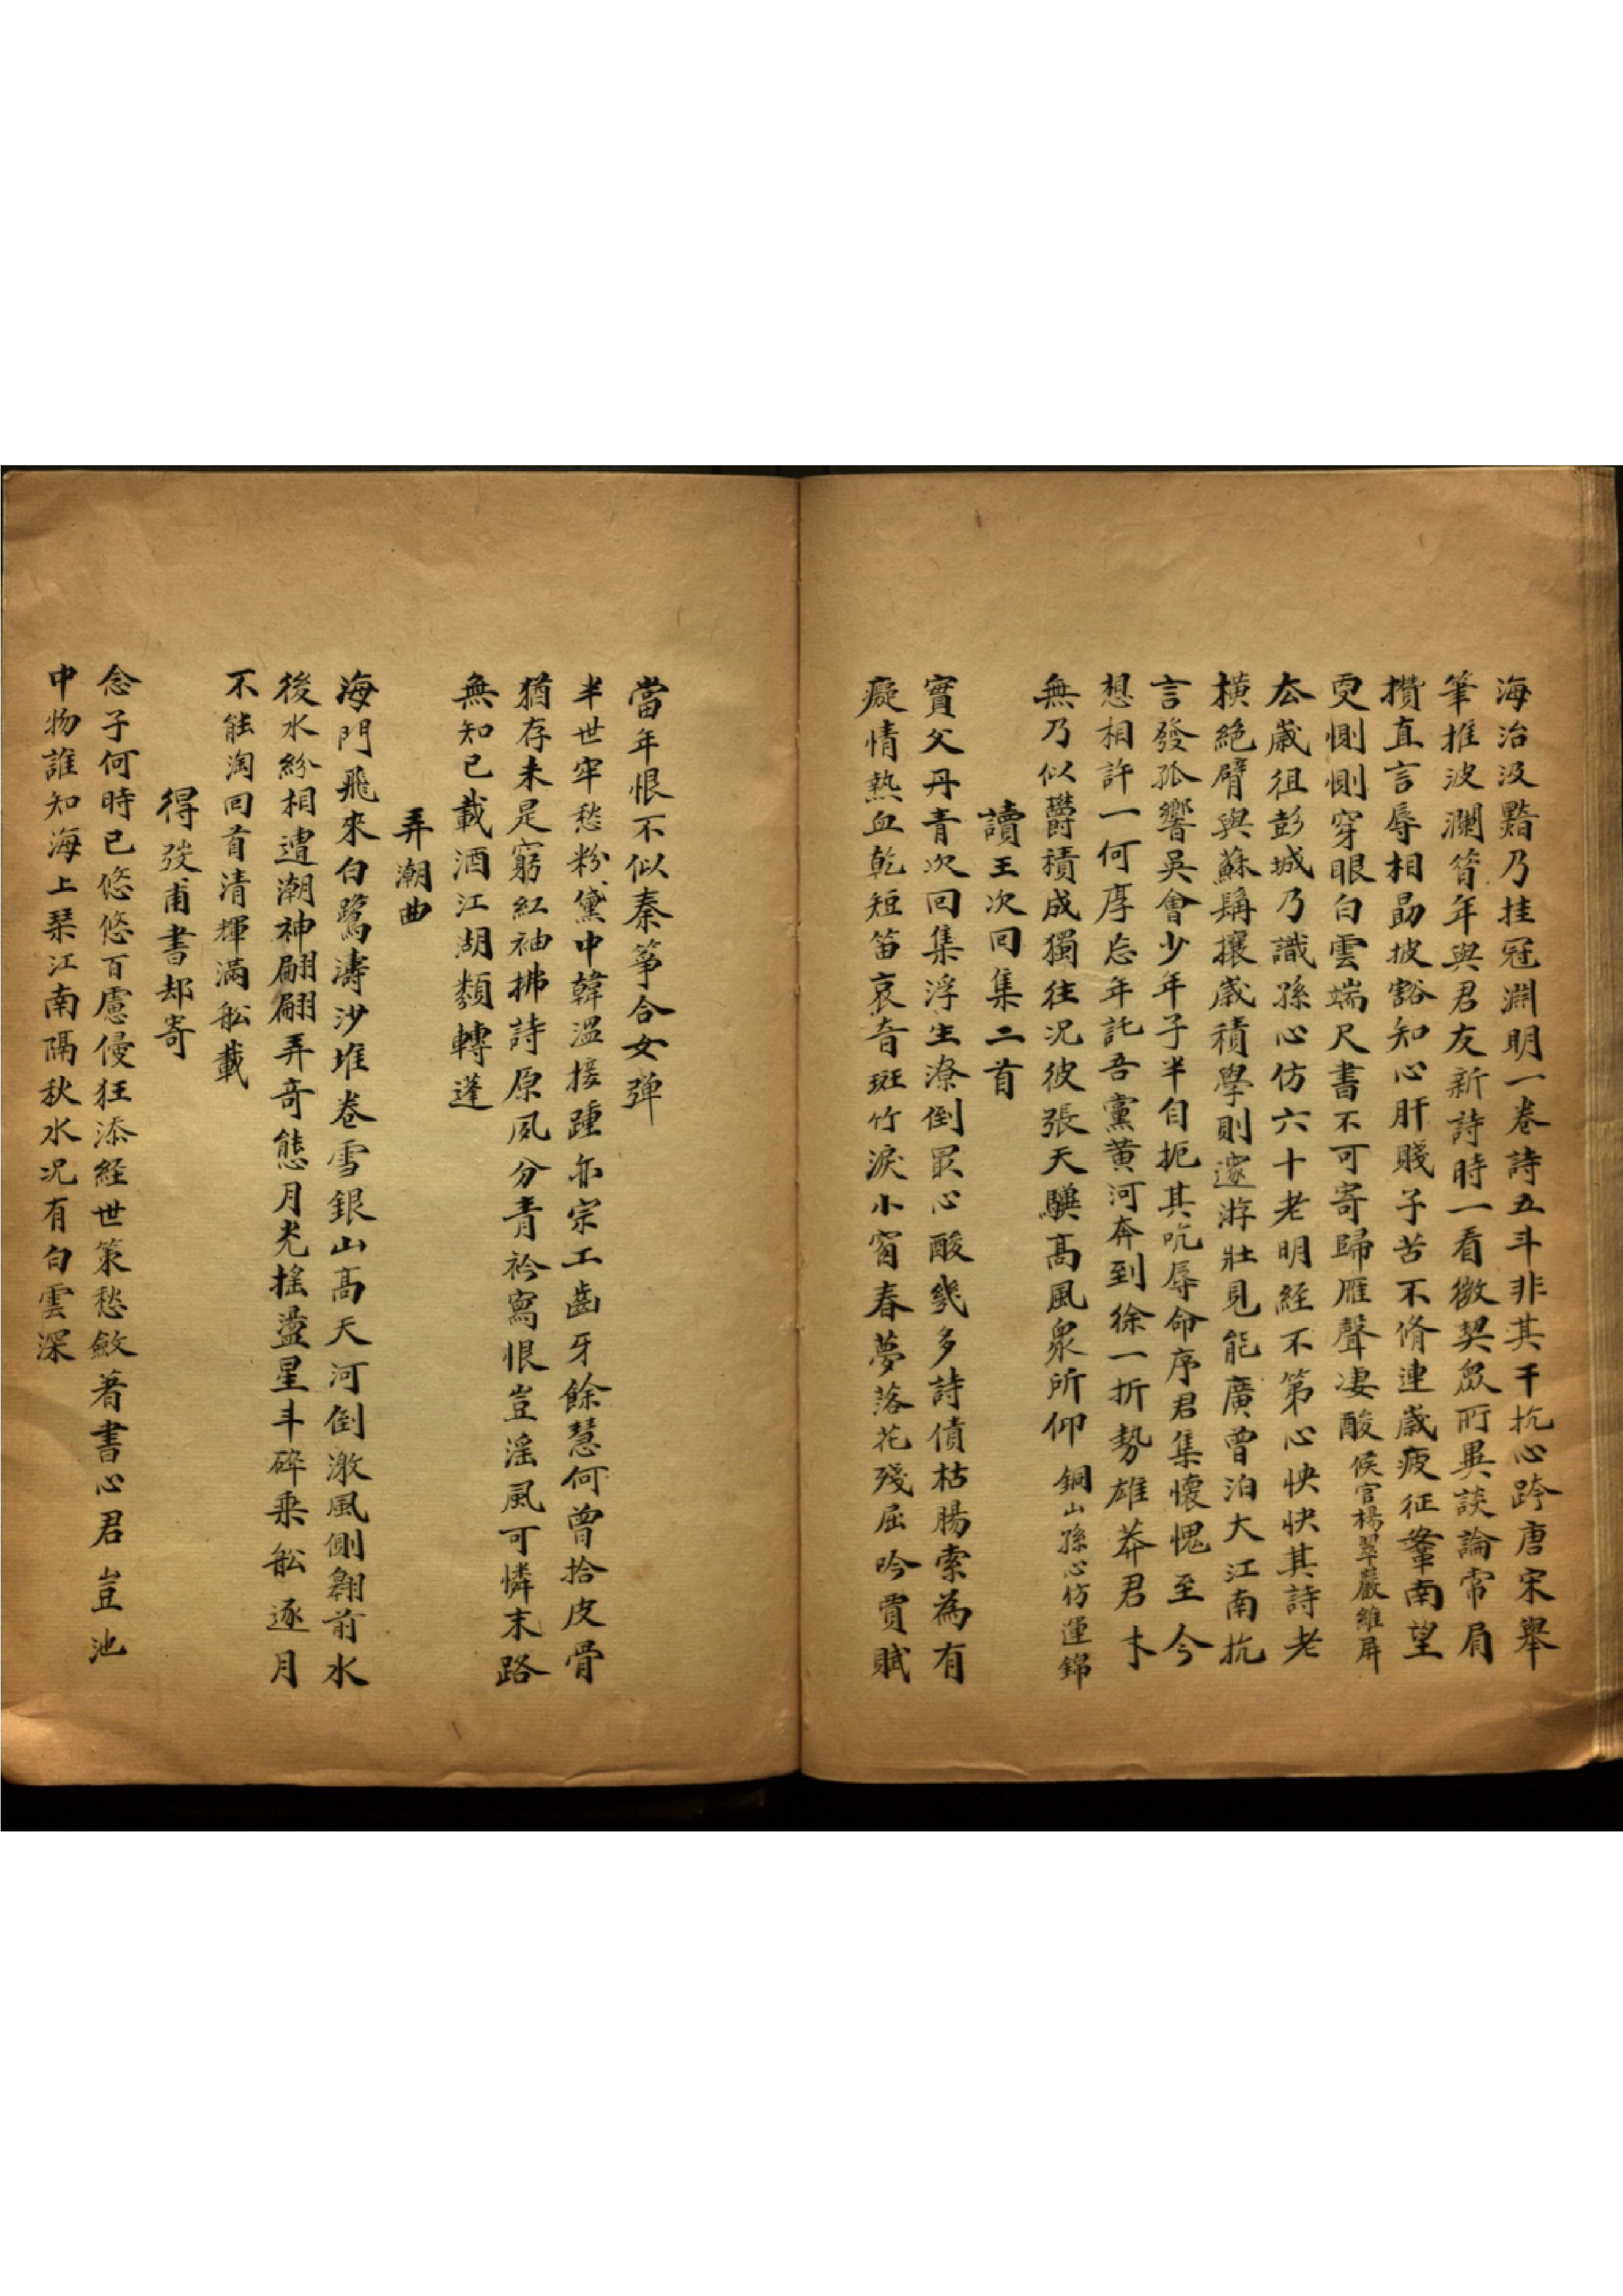 海治汲黯乃挂冠淵明一卷詩五斗非其干抗心跨唐宋舉
筆推波瀾昝年與君友新詩時一看微契眾所異談論常肩
攢直言辱相勗披豁知心肝賤子苦不脩連歲疲征鞌南望
更惻惻穿眼白雲端尺書不可寄歸雁聲凄酸 候官楊翠巖維屏
厺歲徂彭城乃識孫心仿六十老明經不第心怏怏其詩老
橫絕臂與蘇髯攘歲積學則邃游壯見能廣曾泊大江南抗
言發孤響吳會少年子半自扼其吭辱命序君集懷愧至今
想相許一何厚忘年託吾黨黄河奔到徐一折勢雄莽君才
無乃似欝積成獨往況彼張天驥高風眾所仰 銅山孫心仿運錦
讀王次回集二首
實父丹青次回集浮生潦倒最心酸幾多詩債枯腸索為有
癡情熱血乾短笛哀音斑竹淚小窗春夢落花殘屈吟賈賦
當年恨不似秦箏合女彈
半世牢愁粉黛中韓溫接踵亦宗工齒牙餘慧何曾拾皮骨
猶存未是窮紅袖拂詩原夙分青衿寫恨豈淫風可憐末路
無知已載酒江湖類轉蓬
弄潮曲
海門飛來白鷺濤沙堆卷雪銀山高天河倒漵風側翱前水
後水紛相遭潮神翩翩弄奇態月光搖盪星斗碎乘舩逐月
不能淘回首清輝滿舩載
得發甫書却寄
念子何時已悠悠百慮侵狂添経世策愁斂著書心君豈池
中物誰知海上琹江南隔秋水况有白雲深